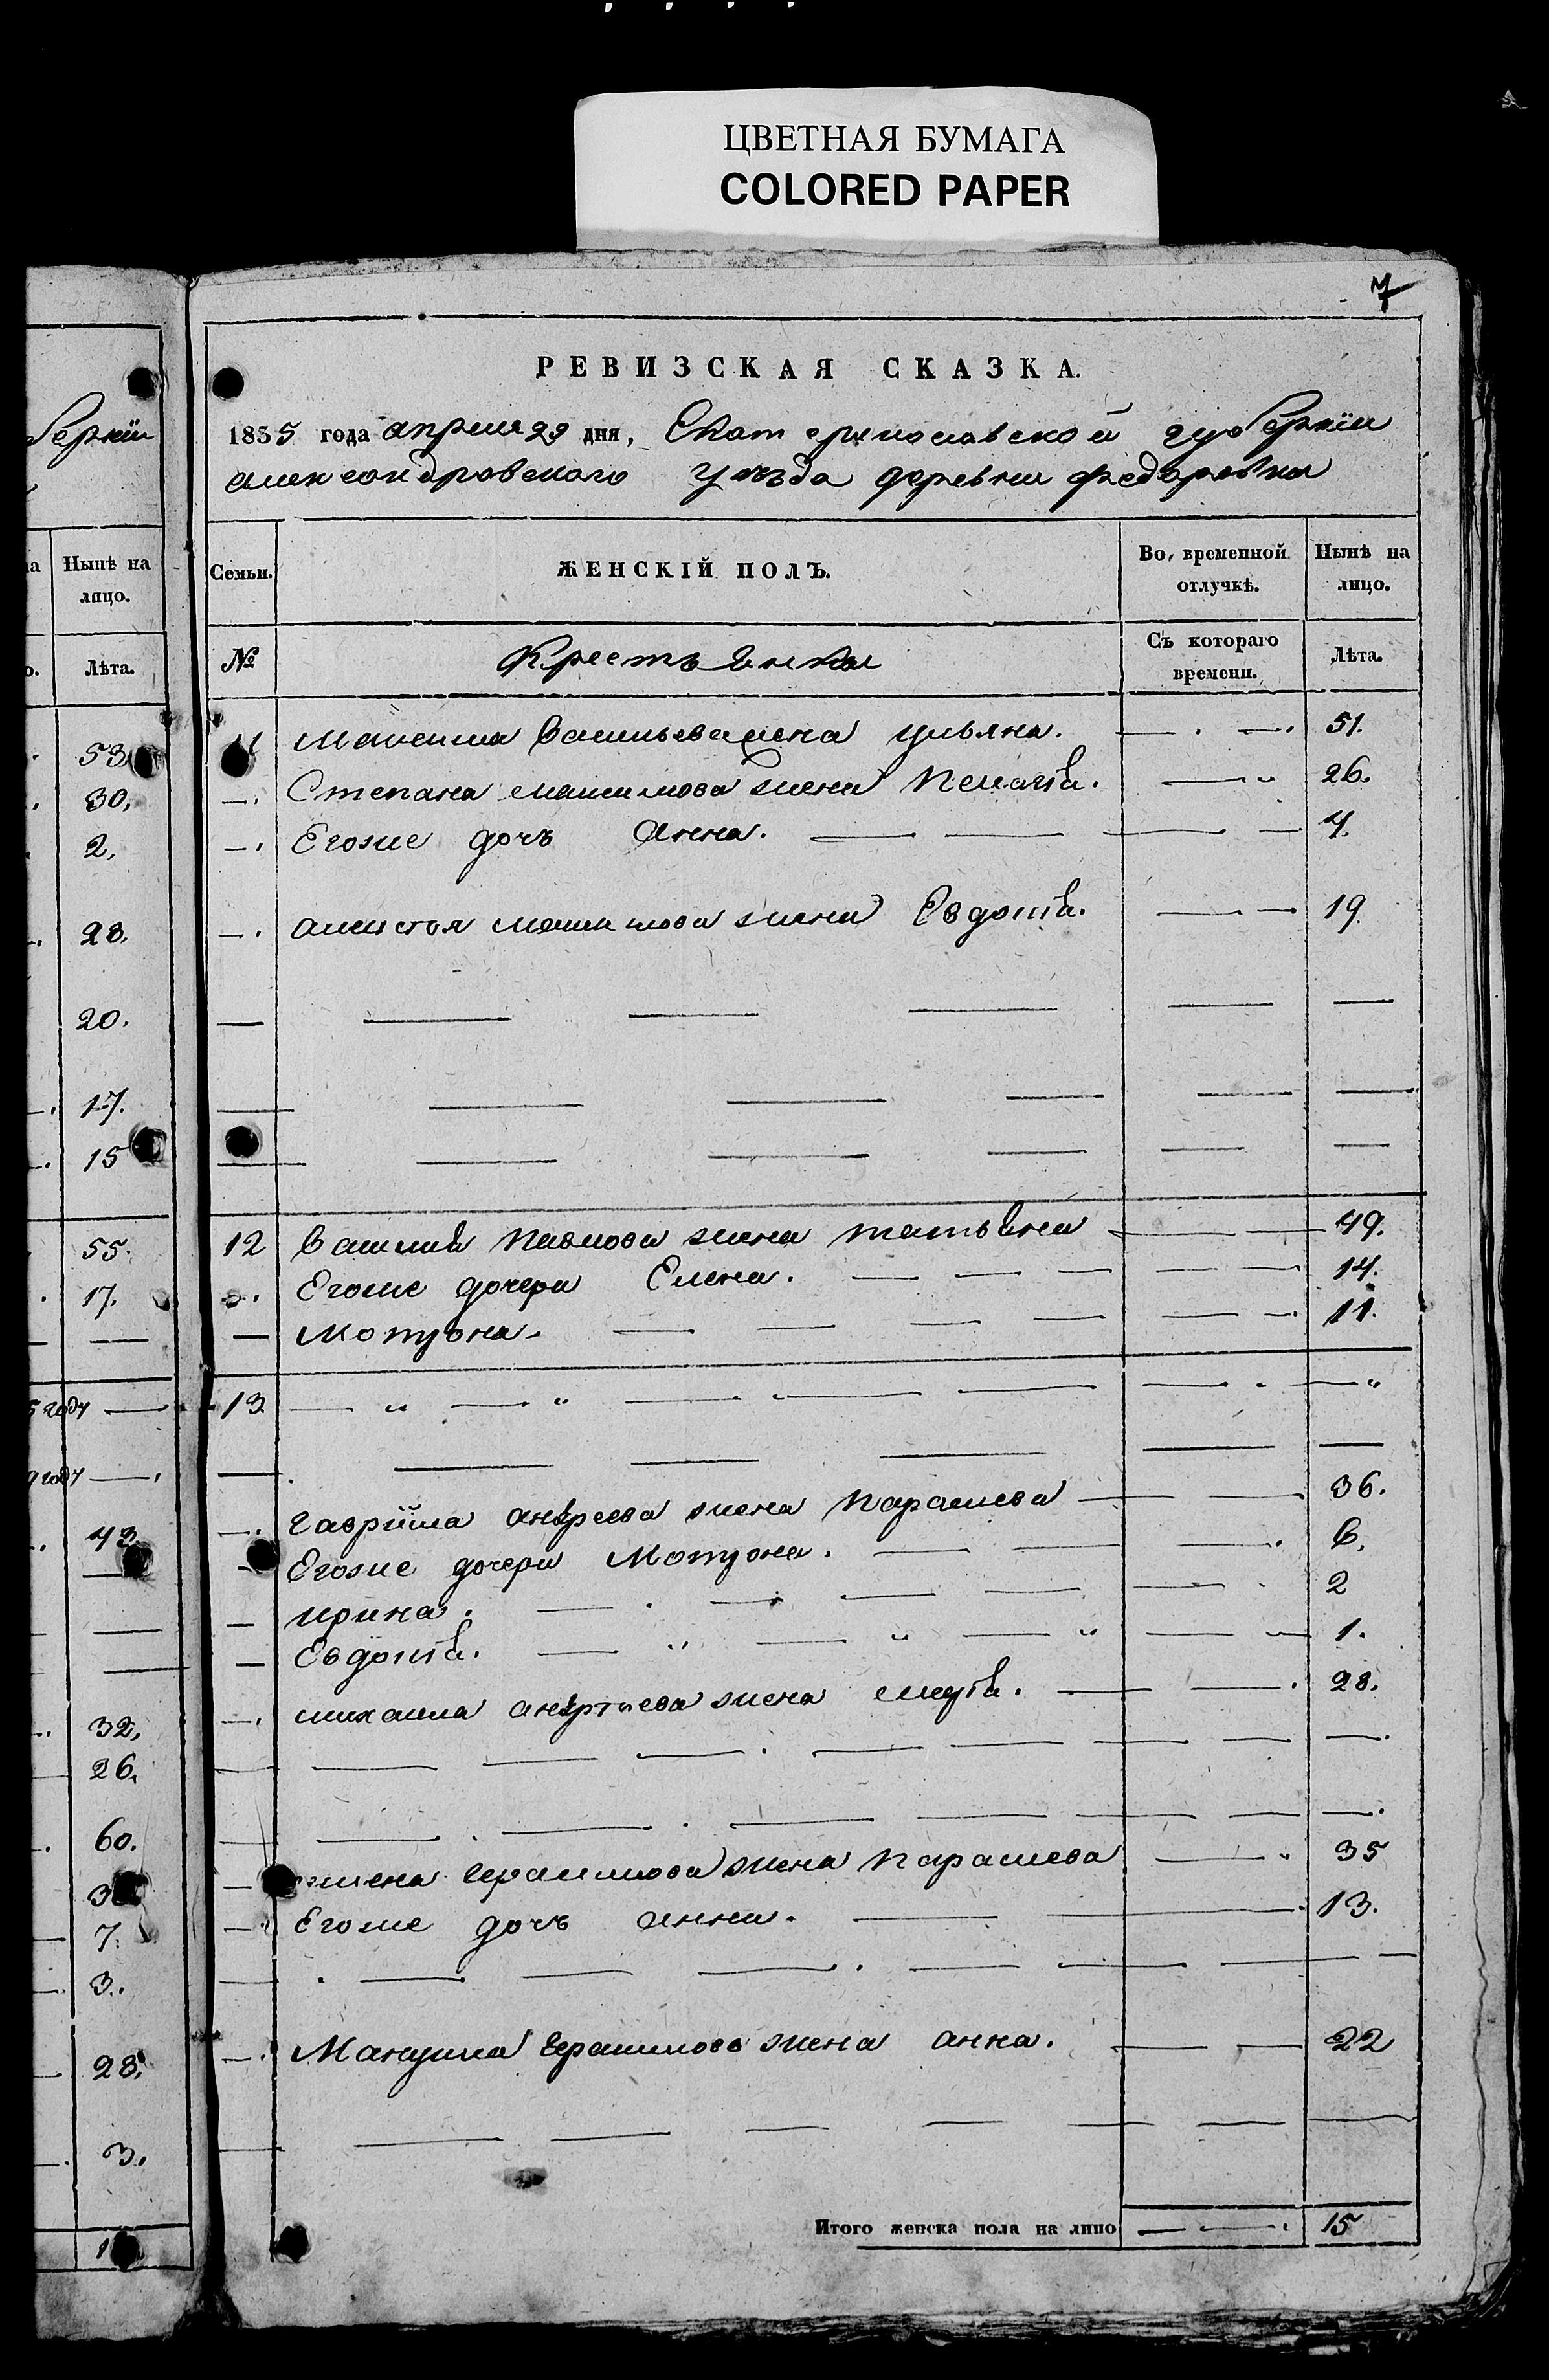 ЦВЕТНАЯ БУМАГА
COLORED PAPER
7
РЕВИЗСКАЯ СКАЗКА.
1835 года апреля 29 дня, Екатеринославской губернїи
александровского уѣзда деревни федоровки
бернїи
Нынѣ на лицо.
Лѣта.
53
30.
2.
28.
20.
17.
15
55.
17.
5 году
9 году
43
32,
26.
60.
3
7.
3.
28.
3.
1
Семьи.
ЖЕНСКІЙ ПОЛЪ.
Во, временной отлучкѣ.
Нынѣ на лицо.
№
Крестьянки
Съ котораго времени.
Лѣта.
11 Максима Васильева жена ульяна. 51.
Степана максимова жена Пелагѣя. 26.
Егоже дочь Анна. 4.
максимова жена Евдокія. 19.
12 Василия Павлова жена татьяна 49.
Егоже дочери Елена. 14.
Мотрона. 11.
13
гаврїила андреева жена Парасцева 36.
Егоже дочери Мотрона. 6.
ирина. 2
Евдокія. 1.
михаила андреева жена 28.
герасимова жена Парасцева 35
Егоже дочь анна. 13.
Мануила герасимова жена анна. 22
Итого женска пола на лицо 15